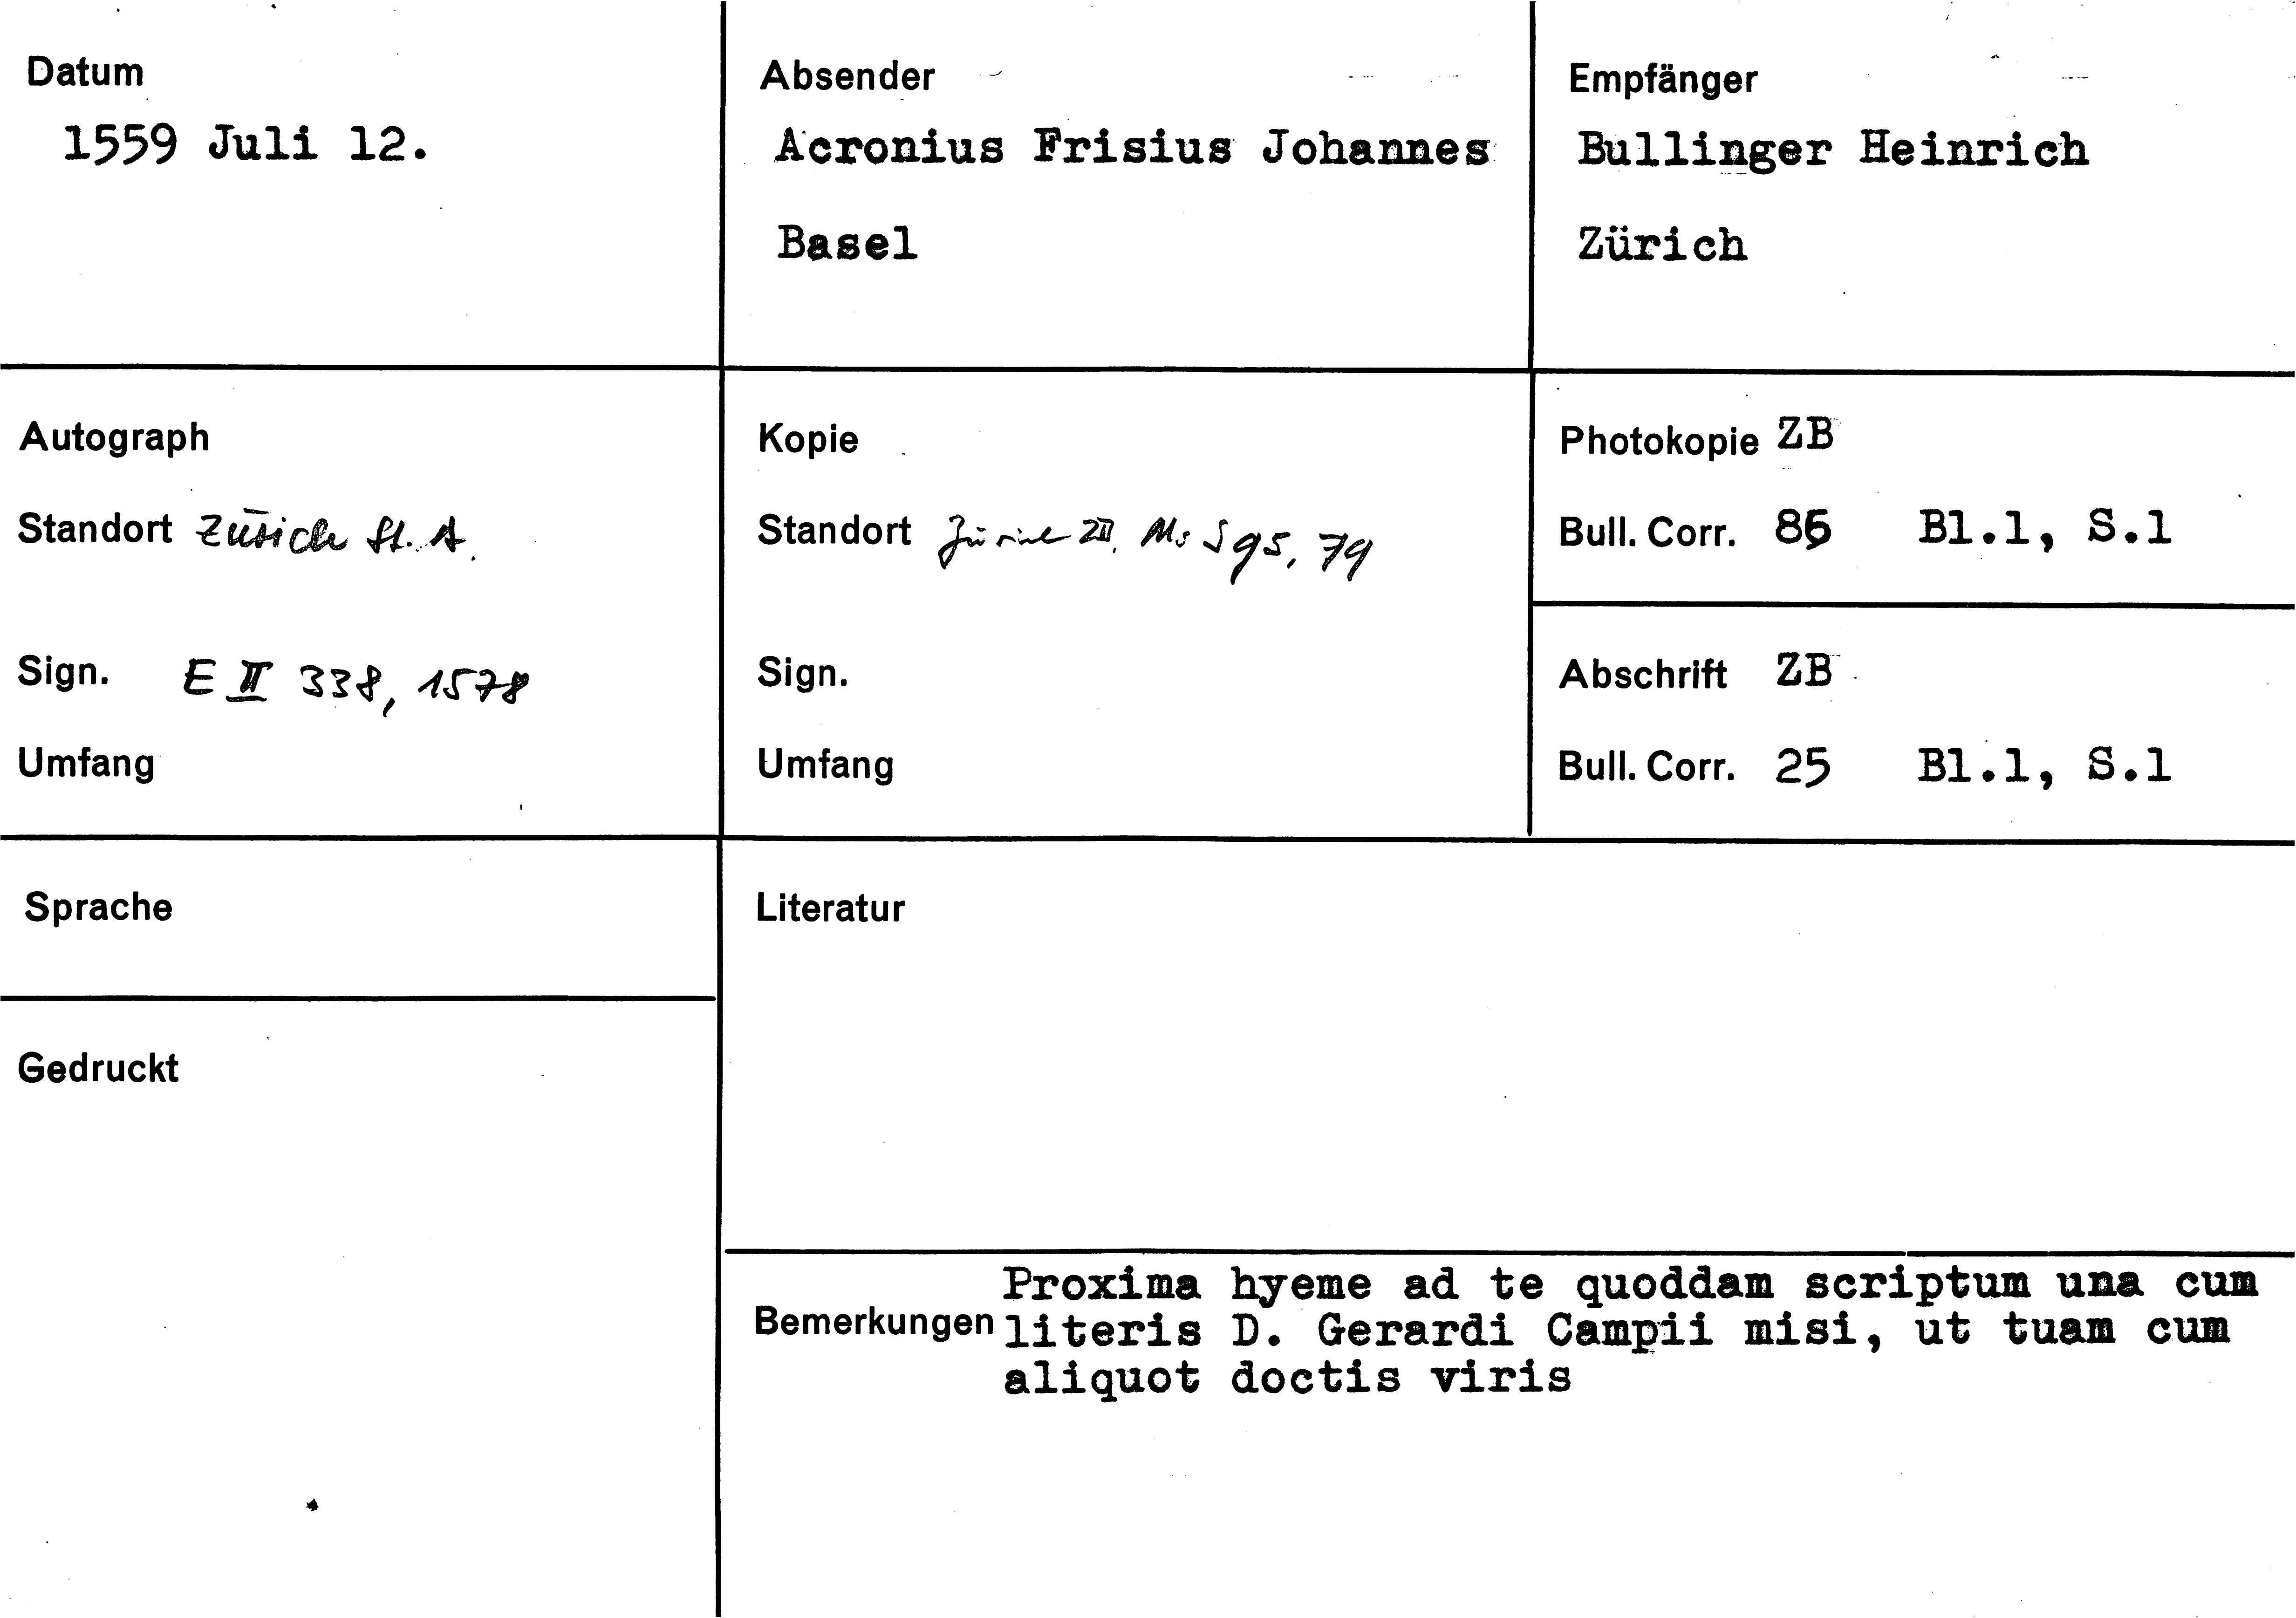 Datum
1559 Juli 12.
Absender
Acronius Frisius Johannes
Basel
Empfänger
Bullinger Heinrich
Zürich
Autograph
Standort Zürich St. A.
Sign. E II 338, 1578
Umfang
Kopie
Standort Zürich ZB, Ms S 95, 79
Sign.
Umfang
Photokopie ZB
Bull. Corr. Bl.1, S.1
Abschrift ZB
Bull. Corr. 25 Bl.1, S.1
Sprache
Gedruckt
Literatur
Bemerkungen
Proxima hyeme ad te quoddam scriptum una cum
literis D. Gerardi Campii misi, ut tuam cum
aliquot doctis viris